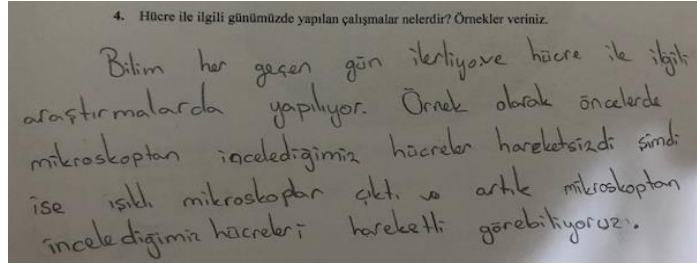 4. Hücre ile ilgili günümüzde yapılan çalışmalar nelerdir? Örnekler veriniz.
Bilim her geçen gün ilerliyor.ve hücre ile ilgili
araştırmalarda yapılıyor. Örnek olarak öncelerde
mikroskoptan incelediğimiz hücreler hareketsizdi şimdi
ise ışıklı mikroskoplar çıktı ve artık mikroskoptan
incelediğimiz hücreleri hareketli görebiliyoruz.